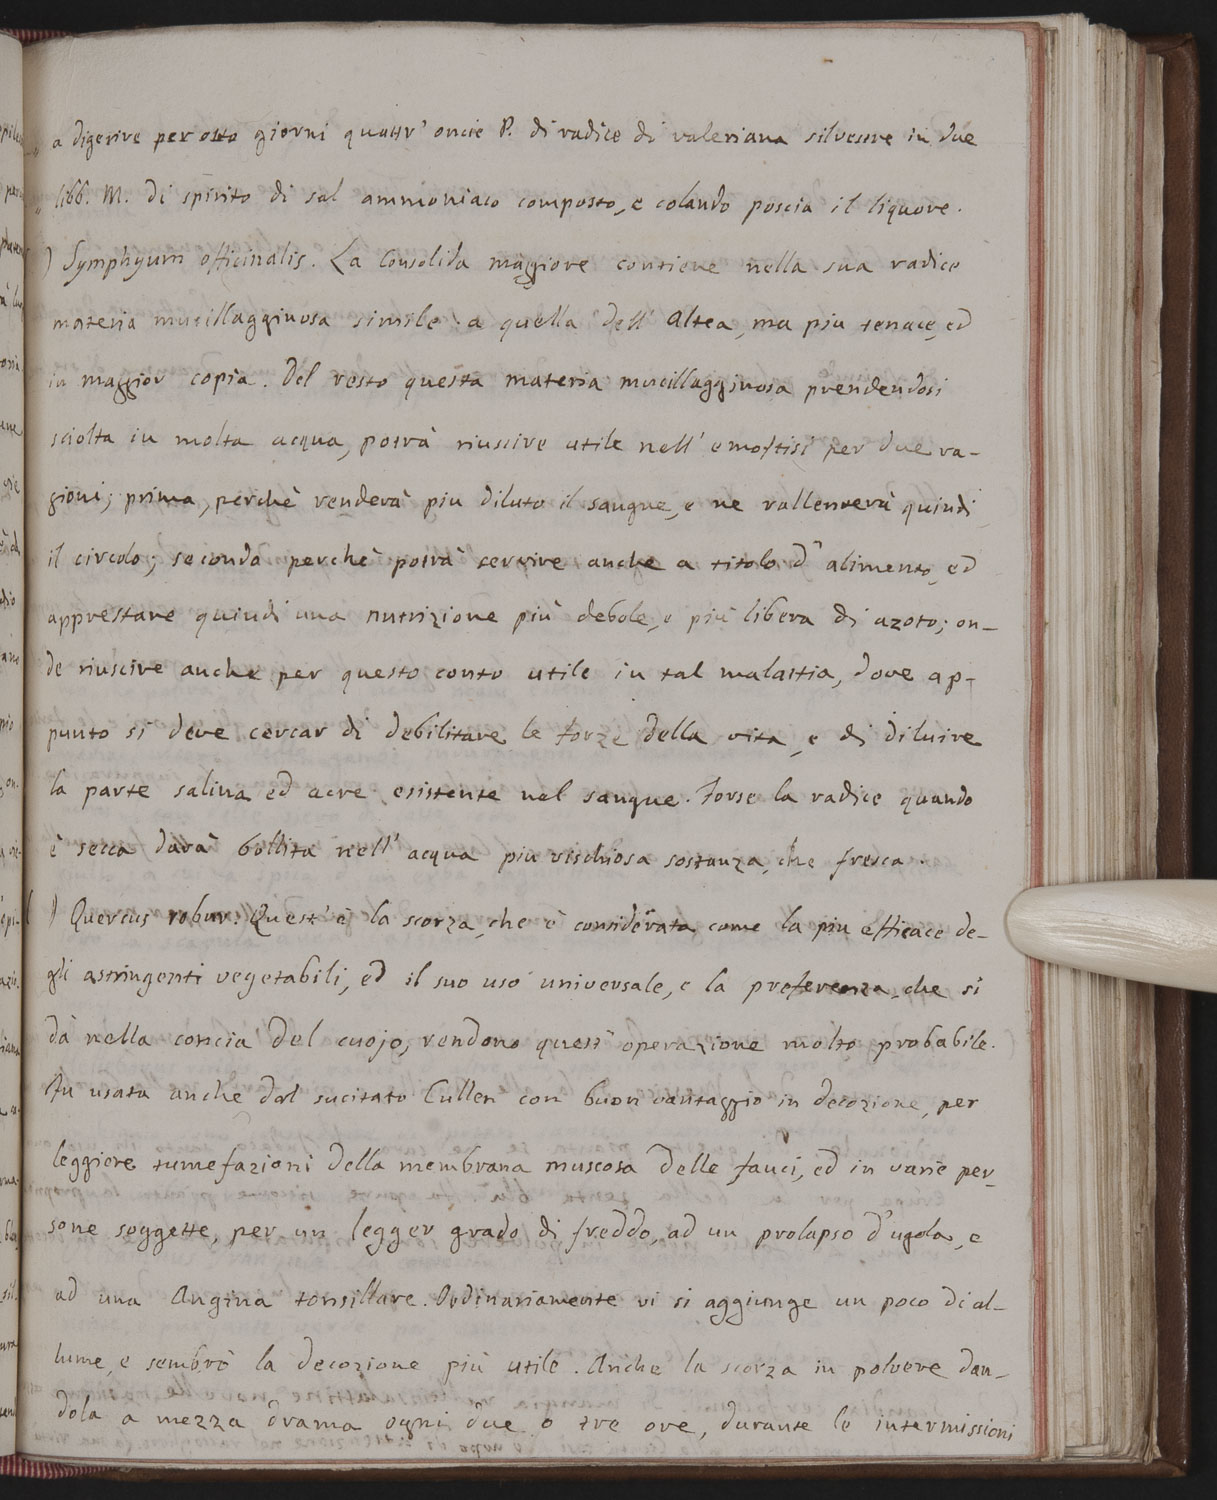 „ a digerire per otto giorni quattr' oncie P. di radice di valeriana silvestre in due
„ libb. M. di spirito di sal ammoniaco composto, e colando poscia il liquore.
) Symphytum officinalis. La Consolida maggiore contiene nella sua radice
materia mucillagginosa simile a quella dell' Altea, ma piu tenace, ed
in maggior copia. Del resto questa materia mucillagginosa prendendosi
sciolta in molta acqua, potrà riuscire utile nell' emoftisi per due ra-
gioni; prima, perchè renderà piu diluto il sangue, e ne rallenterà quindi
il circolo; seconda perchè potrà servire anche a titolo d' alimento, ed
apprestare quindi una nutrizione più debole, e più libera di azoto; on-
de riuscire anche per questo conto utile in tal malattia, dove ap-
punto si deve cercar di debilitare le forze della vita, e di diluire
la parte salina ed acre esistente nel sangue. Forse la radice quando
è secca darà bollita nell' acqua piu vischiosa sostanza, che fresca.
) Quercus robur. Quest' è la scorza, che è considerata come la piu efficace de-
gli astringenti vegetabili, ed il suo uso universale, e la preferenza, che si
dà nella concia del cuojo, rendono quest' operazione molto probabile.
Fu usata anche dal sucitato Cullen con buon vantaggio in decozione, per
leggiere tumefazioni della membrana muscosa delle fauci, ed in varie per-
sone soggette, per un legger grado di freddo, ad un prolapso d'ugola, e
ad una Angina tonsillare. Ordinariamente vi si aggiunge un poco di al-
lume, e sembrò la decozione più utile. Anche la scorza in polvere dan-
dola a mezza drama ogni due o tre ore, durante le intermissioni